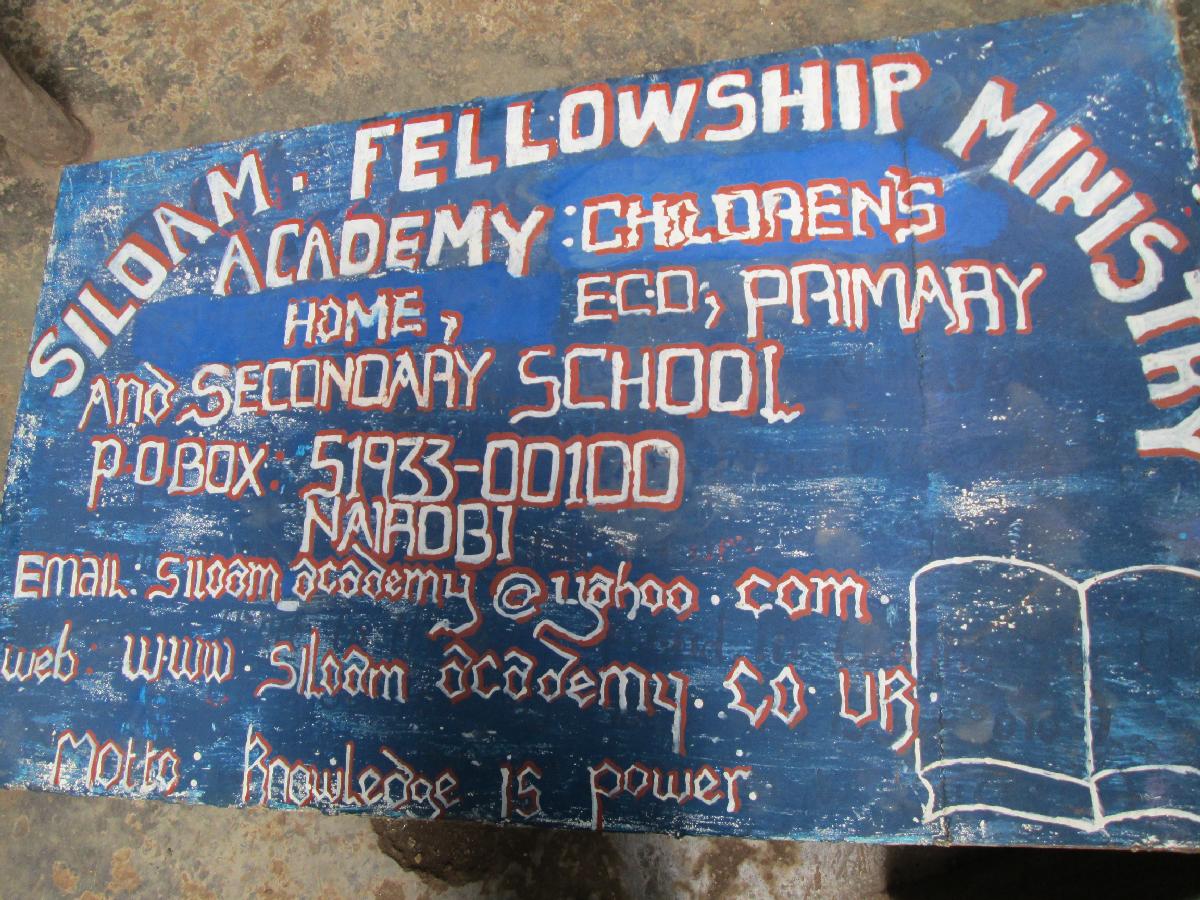 SILOAM. FELLOWSHIP MINISTRY
ACADEMY : CHILDREN'S
HOME, E.C.D, PRIMARY
And SECONDARY SCHOOL
P.O BOX: 51933-00100
NAIROBI
Email: siloam academy@yahoo.com.
web: www.siloam academy. co. UK.
Motto: Knowledge is power.